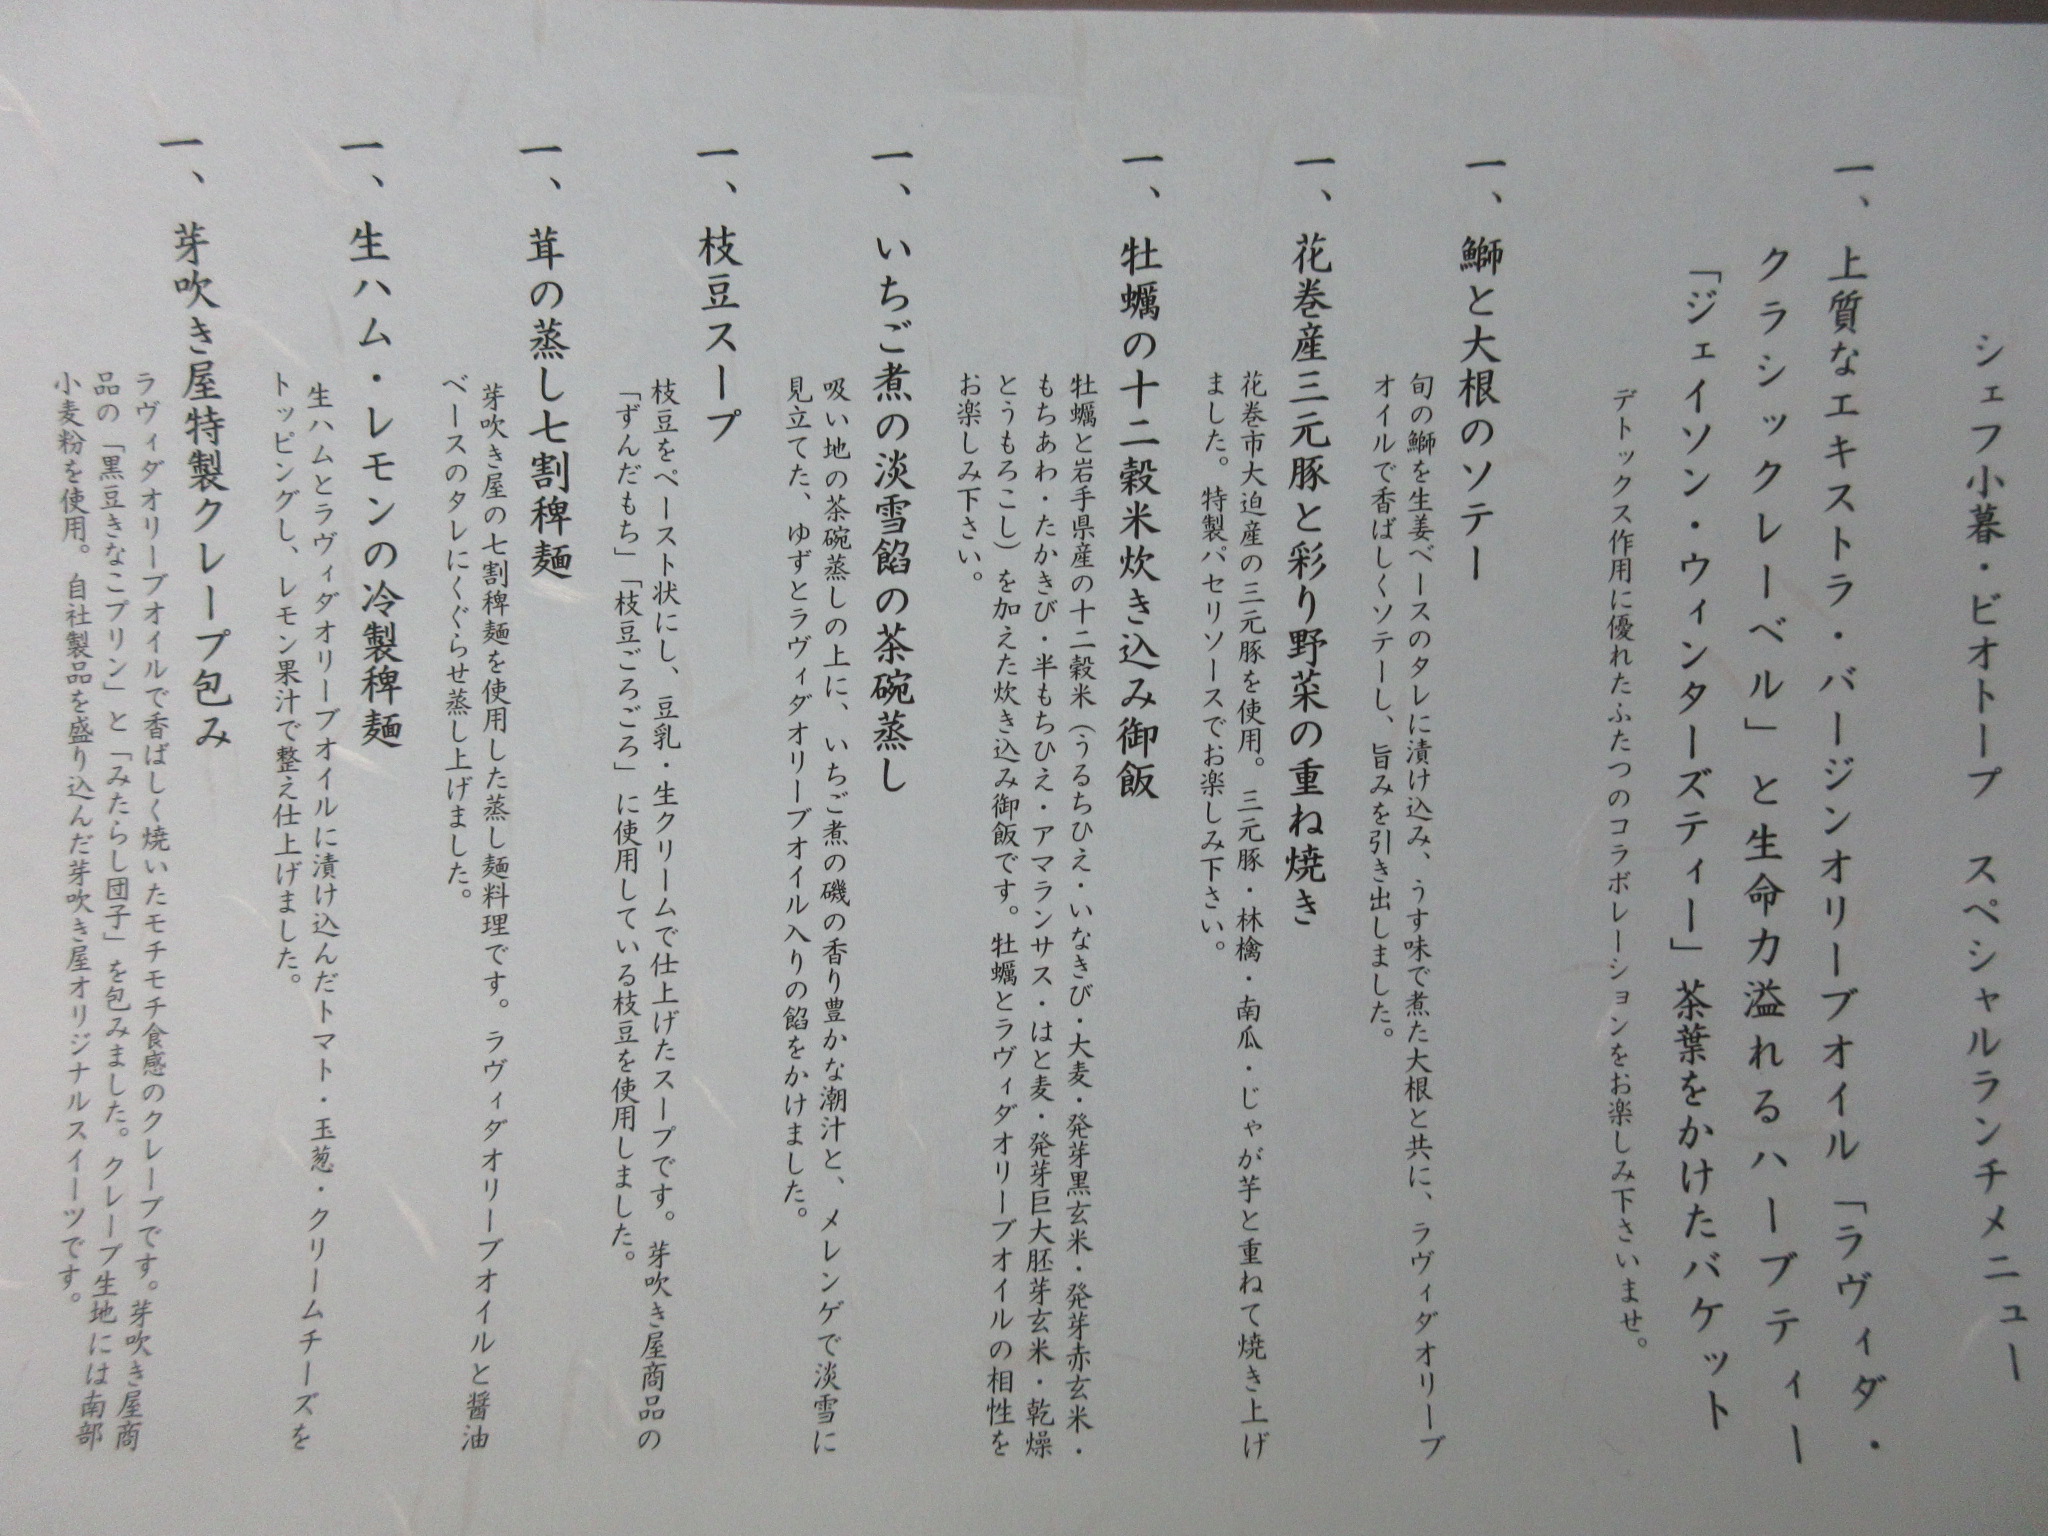 シェフ小暮・ビオトープ スペシャルランチメニュー
一、上質なエキストラ・バージンオリーブオイル「ラヴィダ・
クラシックレーベル」と生命力溢れるハーブティー
「ジェイソン・ウィンターズティー」茶葉をかけたバケット
デトックス作用に優れたふたつのコラボレーションをお楽しみ下さいませ。
一、鰤と大根のソテー
旬の鰤を生姜ベースのタレに漬け込み、うす味で煮た大根と共に、ラヴィダオリーブ
オイルで香ばしくソテーし、旨みを引き出しました。
一、花巻産三元豚と彩り野菜の重ね焼き
花巻市大迫産の三元豚を使用。三元豚・林檎・南瓜・じゃが芋と重ねて焼き上げ
ました。特製パセリソースでお楽しみ下さい。
一、牡蠣の十二穀米炊き込み御飯
牡蠣と岩手県産の十二穀米（うるちひえ・いなきび・大麦・発芽黒玄米・発芽赤玄米・
もちあわ・たかきび・半もちひえ・アマランサス・はと麦・発芽巨大胚芽玄米・乾燥
とうもろこし）を加えた炊き込み御飯です。牡蠣とラヴィダオリーブオイルの相性を
お楽しみ下さい。
一、いちご煮の淡雪餡の茶碗蒸し
吸い地の茶碗蒸しの上に、いちご煮の磯の香り豊かな潮汁と、メレンゲで淡雪に
見立てた、ゆずとラヴィダオリーブオイル入りの餡をかけました。
一、枝豆スープ
枝豆をペースト状にし、豆乳・生クリームで仕上げたスープです。芽吹き屋商品の
「ずんだもち」「枝豆ごろごろ」に使用している枝豆を使用しました。
一、茸の蒸し七割稗麺
芽吹き屋の七割稗麺を使用した蒸し麺料理です。ラヴィダオリーブオイルと醤油
ベースのタレにくぐらせ蒸し上げました。
一、生ハム・レモンの冷製稗麺
生ハムとラヴィダオリーブオイルに漬け込んだトマト・玉葱・クリームチーズを
トッピングし、レモン果汁で整え仕上げました。
一、芽吹き屋特製クレープ包み
ラヴィダオリーブオイルで香ばしく焼いたモチモチ食感のクレープです。芽吹き屋商
品の「黒豆きなこプリン」と「みたらし団子」を包みました。クレープ生地には南部
小麦粉を使用。自社製品を盛り込んだ芽吹き屋オリジナルスイーツです。